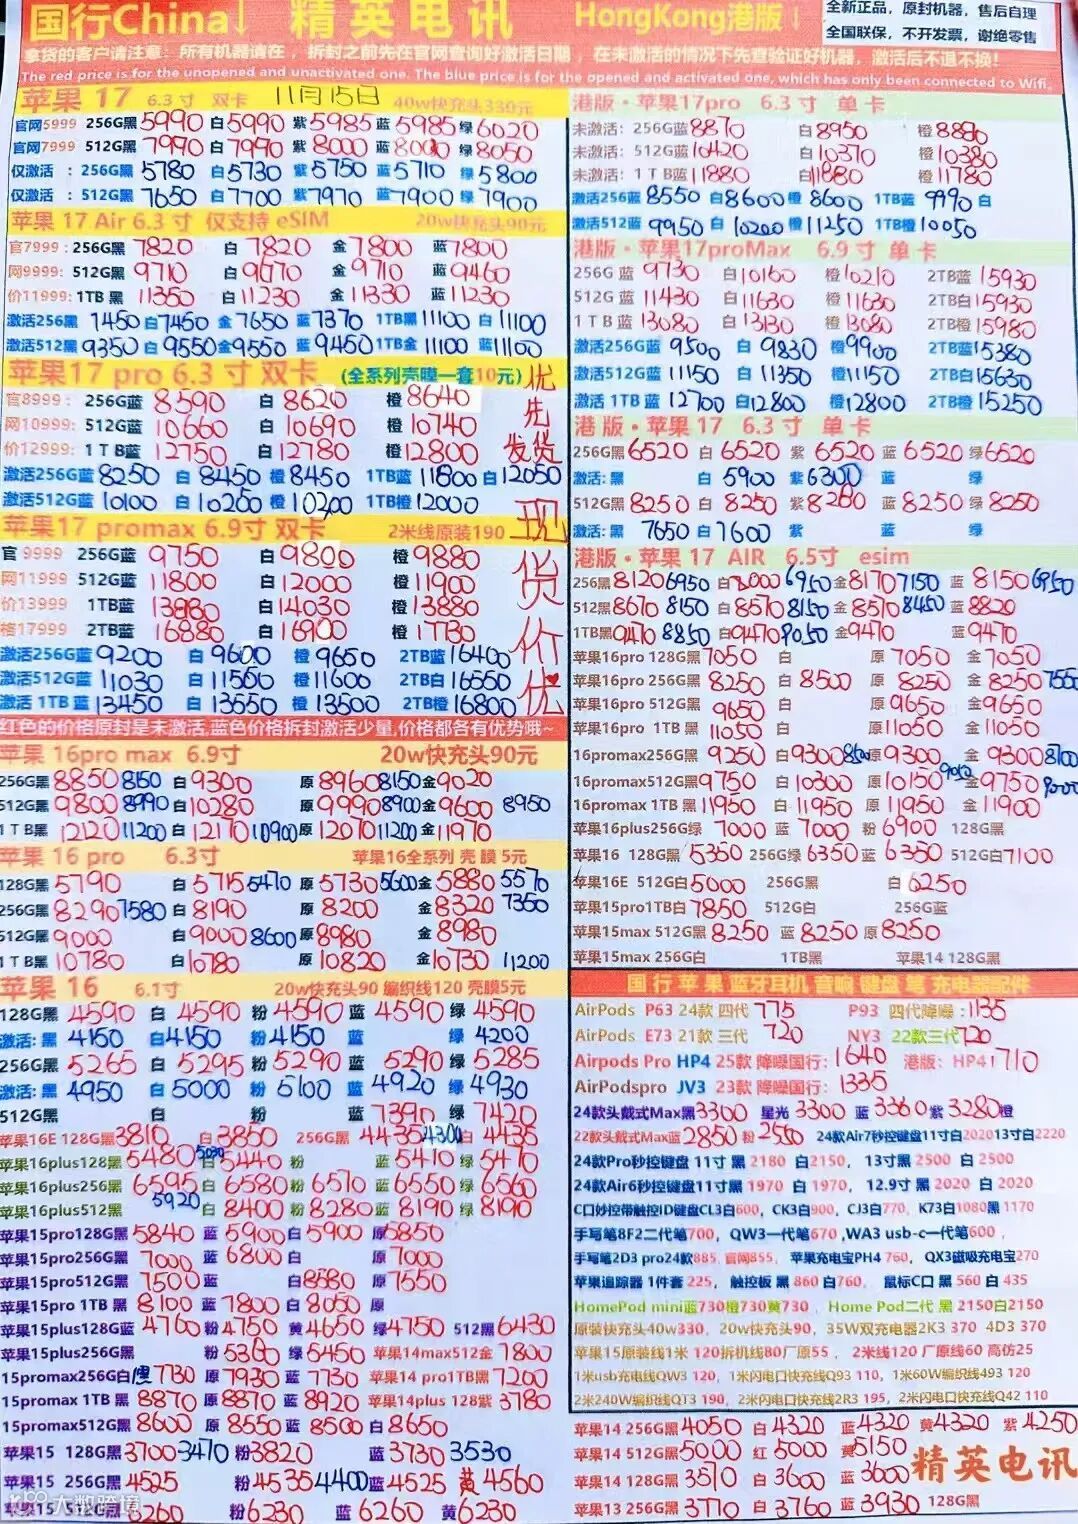 国行China↓ 精英电讯 HongKong港版↓
全新正品，原封机器，售后自理
全国联保，不开发票，谢绝零售
拿货的客户请注意：所有机器请在，拆封之前先在官网查询好激活日期，在未激活的情况下先查验证好机器，激活后不退不换！
The red price is for the unopened and unactivated one. The blue price is for the opened and activated one, which has only been connected to Wifi。
苹果 17 6.3寸 双卡 11月15日 40w快充头330元
官网5999 256G黑5990 白5990 紫5985 蓝5985 绿6020
官网7999 512G黑7990 白7990 紫8000 蓝8000 绿8050
仅激活 ：256G黑5780 白5730 紫5750 蓝5710 绿5800
仅激活 ：512G黑7650 白7700 紫7970 蓝7900 绿7900
苹果 17 Air 6.3寸 仅支持 eSIM 20w快充头90元
官7999：256G黑 7820 白 7820 金 7800 蓝7800
网9999：512G黑 9710 白 9670 金 9710 蓝 9460
价11999：1TB 黑 11350 白11230 金 11330 蓝11230
激活256黑 7450 白7450 金7650 蓝7370 1TB黑11100 白 11100
激活512黑 9350 白9550 金9550 蓝9450 1TB金11100 蓝11100
苹果17 pro 6.3 寸 双卡 (全系列壳膜一套10元)
官8999： 256G蓝 8590 白8620 橙8640
网10999： 512G蓝 10660 白10690 橙10740
价12999： 1 T B蓝 12750 白 12780 橙12800
激活256G蓝8250 白8450 橙8450 1TB蓝11800 白12050
激活512G蓝10100 白10200 橙10200 1TB橙12000
优先发货
现货价优
苹果17 promax 6.9寸 双卡 2米线原装190
官 9999 256G蓝 9750 白9800 橙 9880
网11999 512G蓝 11800 白 12000 橙 11900
价13999 1TB蓝 13880 白 14030 橙 13880
格17999 2TB蓝 16880 白 16900 橙 17730
激活256G蓝 9200 白9600 橙 9650 2TB蓝16400
激活512G蓝 11030 白11500 橙 11600 2TB白16550
激活 1TB 蓝 13450 白13550 橙 13500 2TB橙 16800
红色的价格原封是未激活,蓝色价格拆封激活少量,价格都各有优势哦~
苹果 16pro max 6.9寸 20w快充头90元
256G黑8850 8150 白9300 原8960 8150 金9020
512G黑9800 8990 白10280 原9990 8900 金9600 8950
1 T B黑 12120 11200 白12170 10900 原12070 11200 金11970
苹果 16 pro 6.3寸 苹果16全系列 壳 膜 5元
128G黑5790 白5715 5470 原5730 5600 金5880 5570
256G黑8290 7580 白8190 原8200 金8320 7350
512G黑9000 白9000 8600 原8980 金8980
1 T B黑10780 白10780 原10820 金10730 11200
苹果 16 6.1寸 20w快充头90 编织线120 壳膜5元
128G黑4590 白 4590 粉4590 蓝 4590 绿4590
激活: 黑 4150 白4150 粉4150 蓝 绿4200
256G黑5265 白5295 粉5290 蓝 5290 绿5285
激活: 黑 4950 白5000 粉5100 蓝4920 绿4930
512G黑 白 粉 蓝7390 绿7420
苹果16E 128G黑3810 白3850 256G黑 4435 4300 白 4435
苹果16plus128黑5480 5030 白5440 粉 蓝 5410 绿 5470
苹果16plus256黑 6595 白 6580 粉 6570 蓝 6550 绿 6560
苹果16plus512黑 5920 白 8400 粉8280 蓝 8190 绿8190
苹果15pro128G黑 5840 蓝5900 白5900 原5850
苹果15pro256G黑 7000 蓝6800 白 原7000
苹果15pro512G黑 7500 蓝 白8580 原7550
苹果15pro 1TB 黑 8100 蓝7800 白8050 原
苹果15plus128G蓝 4760 粉4750 黄4650 绿4750 512黑6430
苹果15plus256G黑 粉5300 绿5450 苹果14max512金 7800
15promax256G白 黑7730 原7930 蓝7730 苹果14 pro1TB黑7200
15promax 1TB 黑 8870 原8870 蓝8920 苹果14plus 128紫3780
15promax512G黑8600 原 8550 蓝8500 白8650
苹果15 128G黑3700 3470 粉3820 蓝3730 3530
苹果15 256G黑4525 粉4535 4400 蓝4525 黄4560
苹果15 512G黑6260 粉6230 蓝 6260 黄6230
大数跨境
港版·苹果17pro 6.3 寸 单 卡
未激活：256G蓝8870 白8950 橙8890
未激活：512G蓝10420 白10370 橙10380
未激活：1 T B蓝11880 白11880 橙11780
激活256蓝 8550 白8600 橙 8600 1TB蓝 9990 白
激活512蓝 9950 白 10200 橙11250 1TB橙10050
港版·苹果17proMax 6.9 寸 单卡
256G 蓝 9730 白10160 橙10210 2TB蓝15930
512G 蓝 11430 白11630 橙 11630 2TB白15930
1 T B 蓝13080 白13130 橙13080 2TB橙 15980
激活256G蓝 9500 白 9830 橙9900 2TB蓝15380
激活512G蓝 11150 白 11350 橙11150 2TB白15630
激活 1TB 蓝 12700 白12800 橙12800 2TB橙15250
港 版·苹果17 6.3寸 单 卡
256G黑6520 白 6520 紫 6520 蓝 6520 绿6520
激活: 黑 白 5900 紫6300 蓝 绿
512G黑8250 白 8250 紫 8280 蓝 8250 绿 8250
激活: 黑 7650 白7600 紫 蓝 绿
港版·苹果 17 AIR 6.5寸 esim
256黑8120 6950 白8000 6950 金8170 7150 蓝 8150 6950
512黑8670 8150 白8570 8150 金8570 8450 蓝 8820
1TB黑9470 8850 白9470 9050 金9470 蓝 9470
苹果16pro 128G黑7050 白 原 7050 金7050
苹果16pro 256G黑 8250 白 8500 原 8250 金 8250 7550
苹果16pro 512G黑 9650 白 原 9650 金9650
苹果16pro 1TB 黑 11050 白 原11050 金11050
16promax256G黑 9250 白9300 8500 原9300 金9300 8100
16promax512G黑9750 白10300 原10150 9050 金9750 9000
16promax 1TB 黑11950 白11950 原11950 金11900
苹果16plus256G绿 7000 蓝 7000 粉 6900 128G黑
苹果16 128G黑5350 256G绿6350 蓝 6350 512G白7100
苹果16E 512G白5000 256G黑 白 6250
苹果15pro1TB白 7850 512G白 256G蓝
苹果15max 512G黑8250 蓝 8250 原8250
苹果15max 256G白 1TB黑 苹果14 128G黑
国 行 苹 果 蓝 牙耳机 音响 键盘 笔 充电器配件
AirPods P63 24款 四代 775 P93 四代降噪:1135
AirPods E73 21款 三代 720 NY3 22款三代720
Airpods Pro HP4 25款 降噪国行：1640 港版：HP41710
AirPodspro JV3 23款 降噪国行：1335
24款头戴式Max黑3300 星光 3300 蓝 3360 紫 3280橙
22款头戴式Max蓝2850 粉2550 24款Air7秒控键盘11寸白2020 13寸白2220
24款Pro秒控键盘 11寸 黑 2180 白2150， 13寸黑 2500 白 2500
24款Air6秒控键盘11寸黑 1970 白 1970， 12.9寸 黑 2020 白 2020
C口妙控带触控ID键盘CL3白600，CK3白900，CJ3白770，K73白1080黑 1170
手写笔8F2二代笔700，QW3一代笔670 ,WA3 usb-c一代笔600，
手写笔2D3 pro24款885，官网855，苹果充电宝PH4 760，QX3磁吸充电宝270
苹果追踪器 1件套 225，触控板 黑 860 白760， 鼠标C口 黑 560 白 435
HomePod mini蓝730橙730黄730 ，Home Pod二代 黑 2150白2150
原装快充头40w330，20w快充头90，35W双充电器2K3 370 4D3 370
苹果15原装线1米 120拆机线80厂原55 ， 2米线120 厂原线60 高仿25
1米usb充电线QW3 120，1米闪电口快充线Q93 110，1米60W编织线493 120
2米240W编织线QT3 190，2米闪电口快充线2R3 195，2米闪电口快充线Q42 110
苹果14 256G黑4050 白 4320 蓝4320 黄4320 紫 4250
苹果14 512G黑5000 红 5000 黄5150
苹果14 128G黑3570 白3600 蓝3600 精英电讯
苹果13 256G黑 3770 白 3760 蓝 3930 128G黑